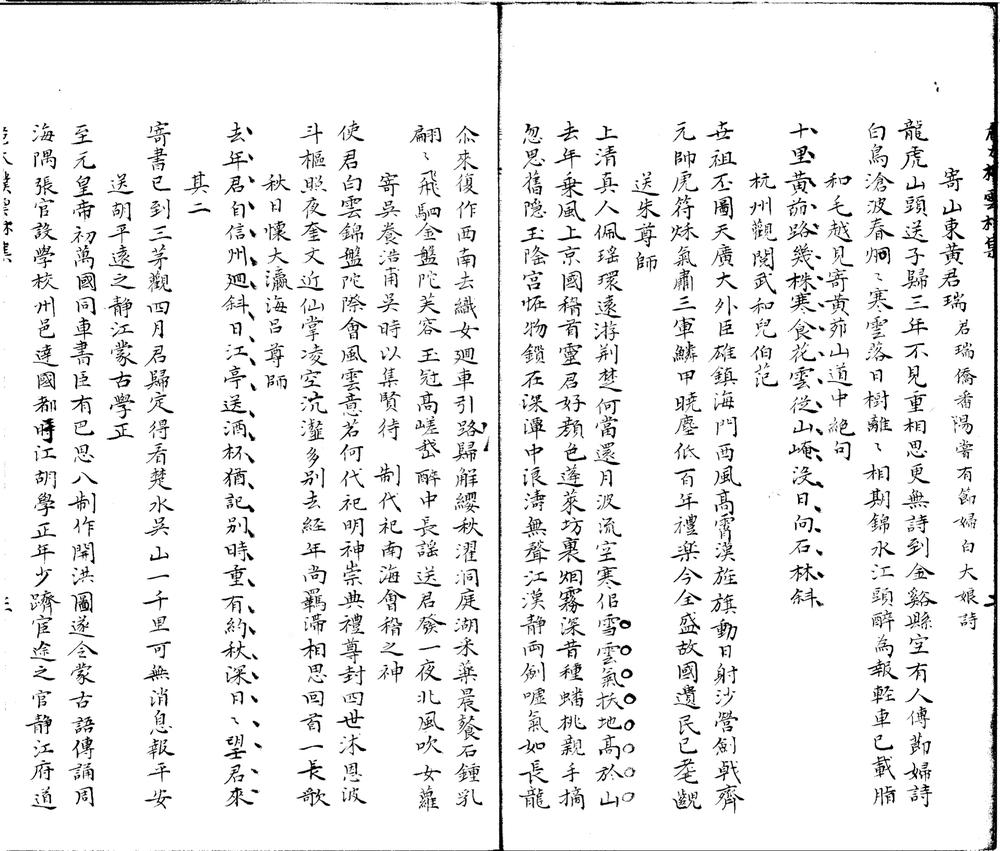 寄山東黃君瑞 君瑞僑番陽嘗有節婦白大娘詩
龍虎山頭送子歸三年不見重相思更無詩到金谿縣空有人傳節婦詩
白鳥滄波春炯〻寒雲落日樹離〻相期錦水江頭醉為報輕車已載脂
和毛越見寄黃茆山道中絕句
十里黃茆路幾株寒食花雲從山崦沒日向石林斜
杭州觀閱武和兒伯范
世祖丕圖天廣大外臣雄鎮海門西風高霄漢旌旗動日射沙營劍戟齊
元帥虎符秌氣肅三軍鱗甲曉塵低百年禮樂今全盛故國遺民已耄齯
送朱尊師
上清真人佩瑤環遠游荆楚何當還月波流空寒侶雪雲氣扶地高於山
去年乗風上京國稽首靈君好顏色蓬萊坊裏烟霧深昔種蟠桃親手摘
忽思舊隐玉隆宮恠物鎖在深潭中浪濤無聲江漢静两例噓氣如長龍
尒來復作西南去織女廻車引路歸解纓秋濯洞庭湖采藥晨餐石鍾乳
翩〻飛駟金盤陀芙容玉冠高嵯峩醉中長謠送君發一夜北風吹女蘿
寄吳養浩甫吳時以集賢待 制代祀南海會稽之神
使君白雲錦盤陀際會風雲意若何代祀明神崇典禮尊封四世沐恩波
斗樞照夜奎文近仙掌凌空沆瀣多别去経年尚羈滯相思回首一長歌
秋日懷大瀛海吕尊師
去年君自信州廻斜日江亭送酒杯猶記别時重有約秋深日〻望君來
其二
寄書已到三茅觀四月君歸定得看楚水吳山一千里可無消息報平安
送胡平遠之静江蒙古學正
至元皇帝初萬國同車書臣有巴思八制作開洪圖遂令蒙古語傳誦周
海隅張官設學校州邑達國都時江胡學正年少躋宦途之官静江府道